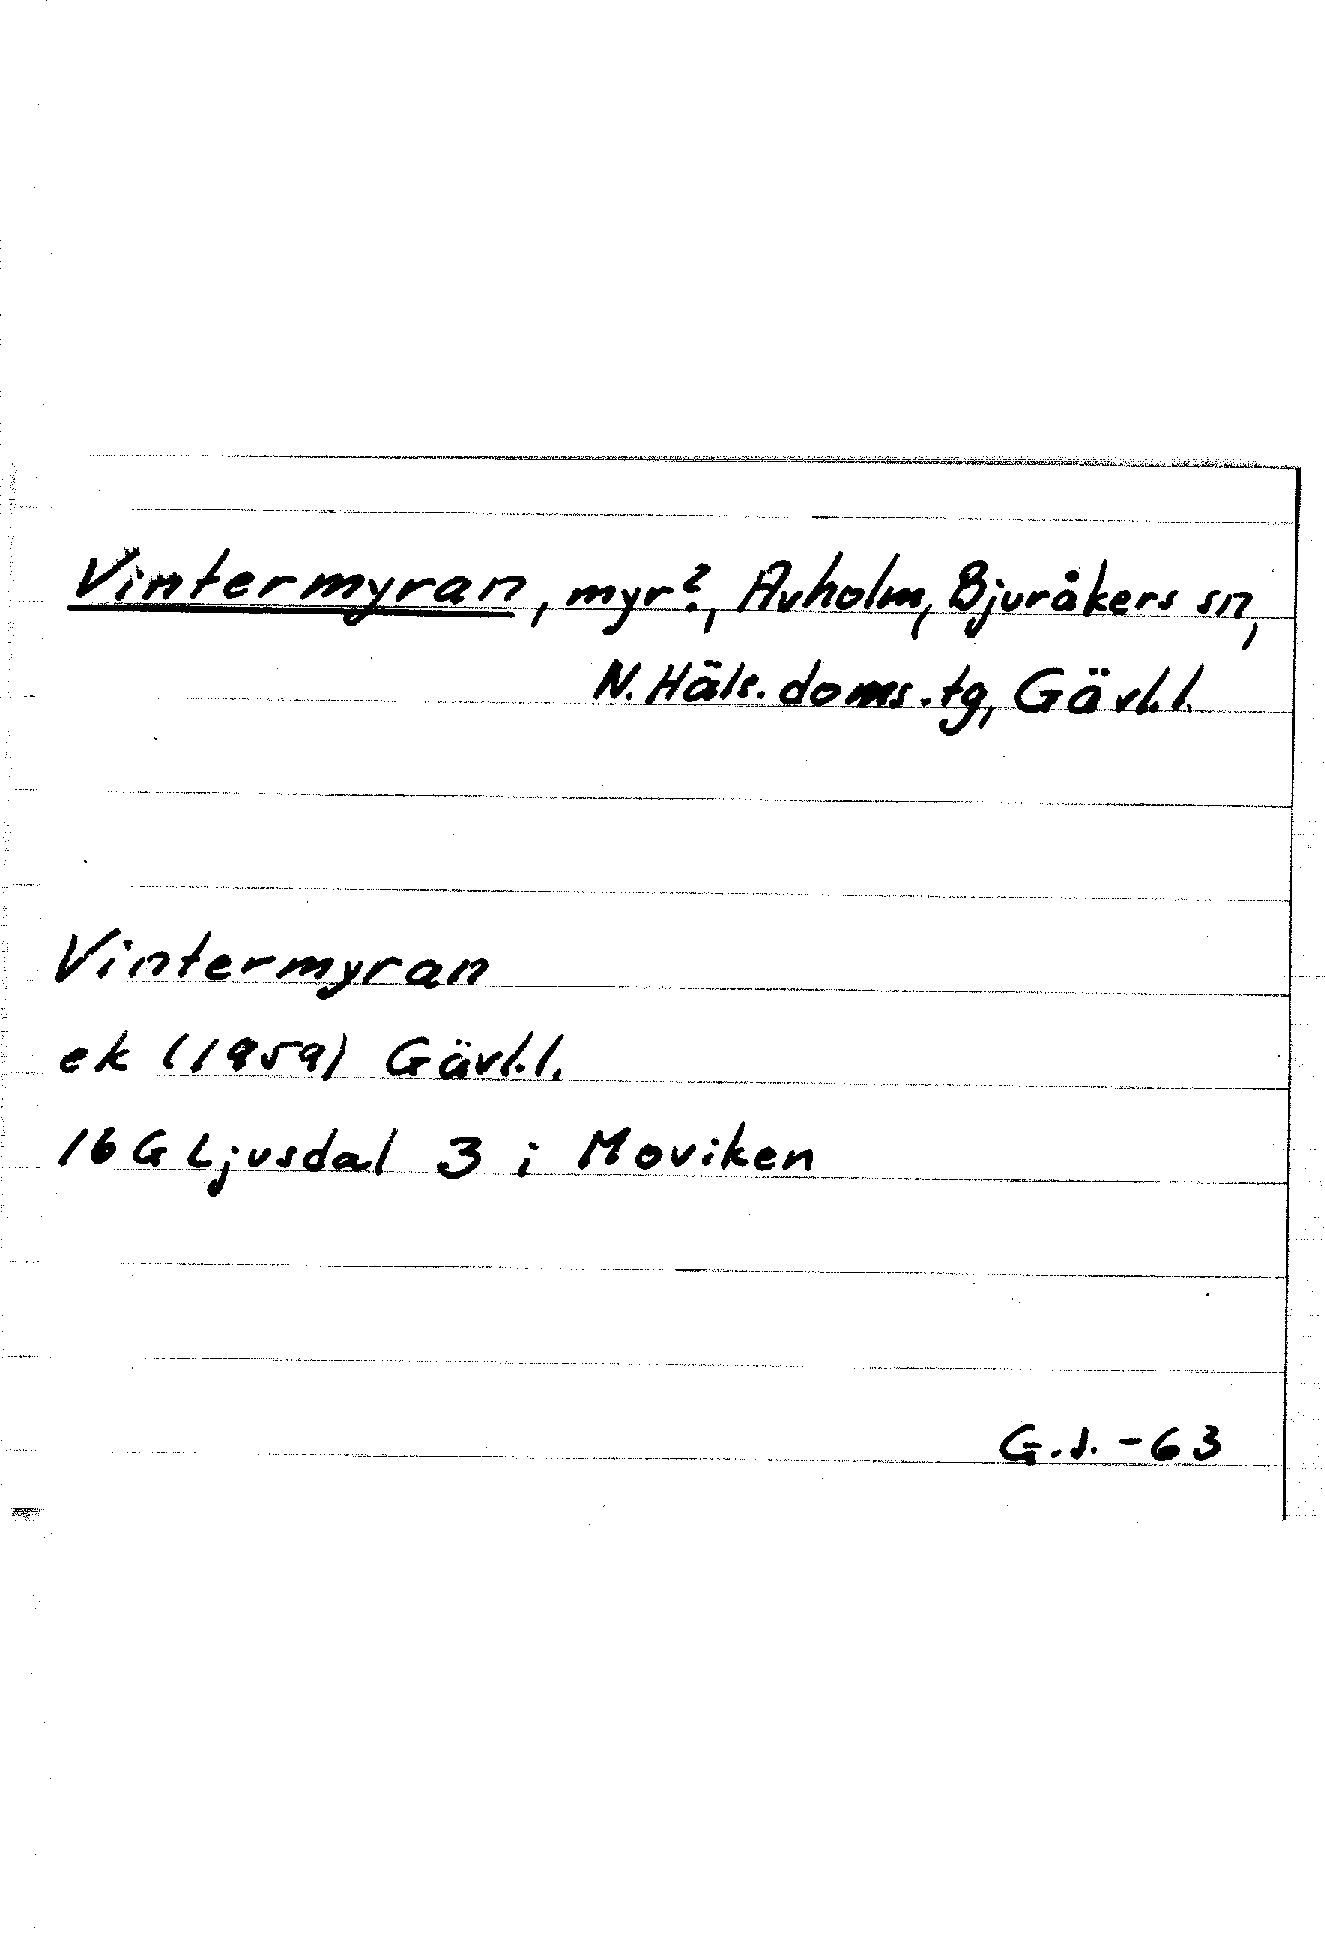 Vintermyran, myr?, Avholm, Bjuråkers sn,
N. Häls. doms. tg, Gävl. l.
Vintermyran
ek (1959) Gävl. l.
16 G Ljusdal 3 i Moviken
G.J. -63